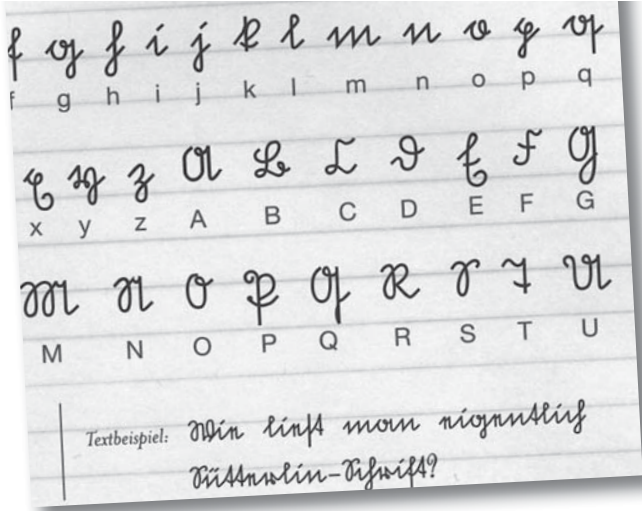 f g h i j k l m n o p q
f g h i j k l m n o p q
x y z A B C D E F G
x y z A B C D E F G
M N O P Q R S T U
M N O P Q R S T U
Textbeispiel: Wie liest man eigentlich
Sütterlin-Schrift?